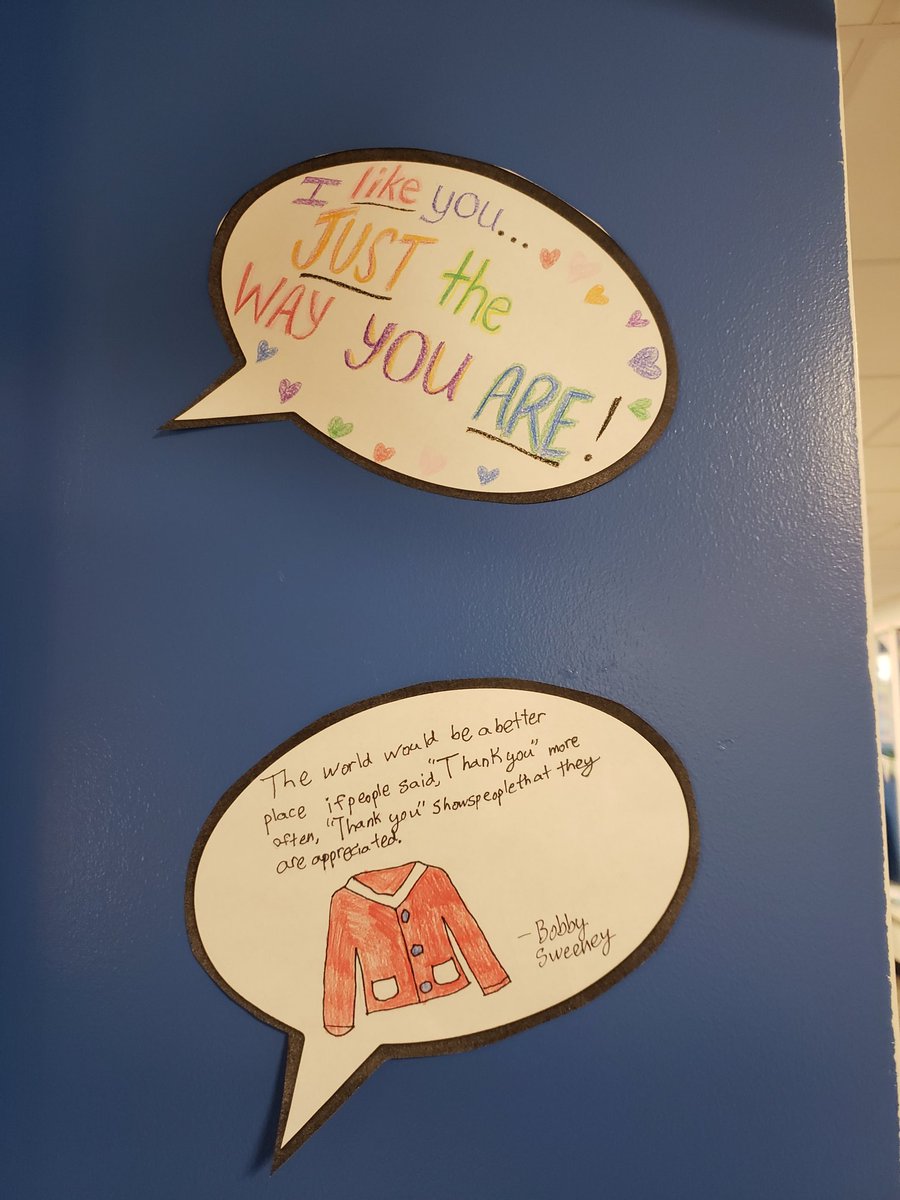 I like you...
JUST the
WAY YOU ARE!
The world would be a better
place if people said, "Thank you" more
often, "Thank you" shows people that they
are appreciated.
- Bobby
Sweeney